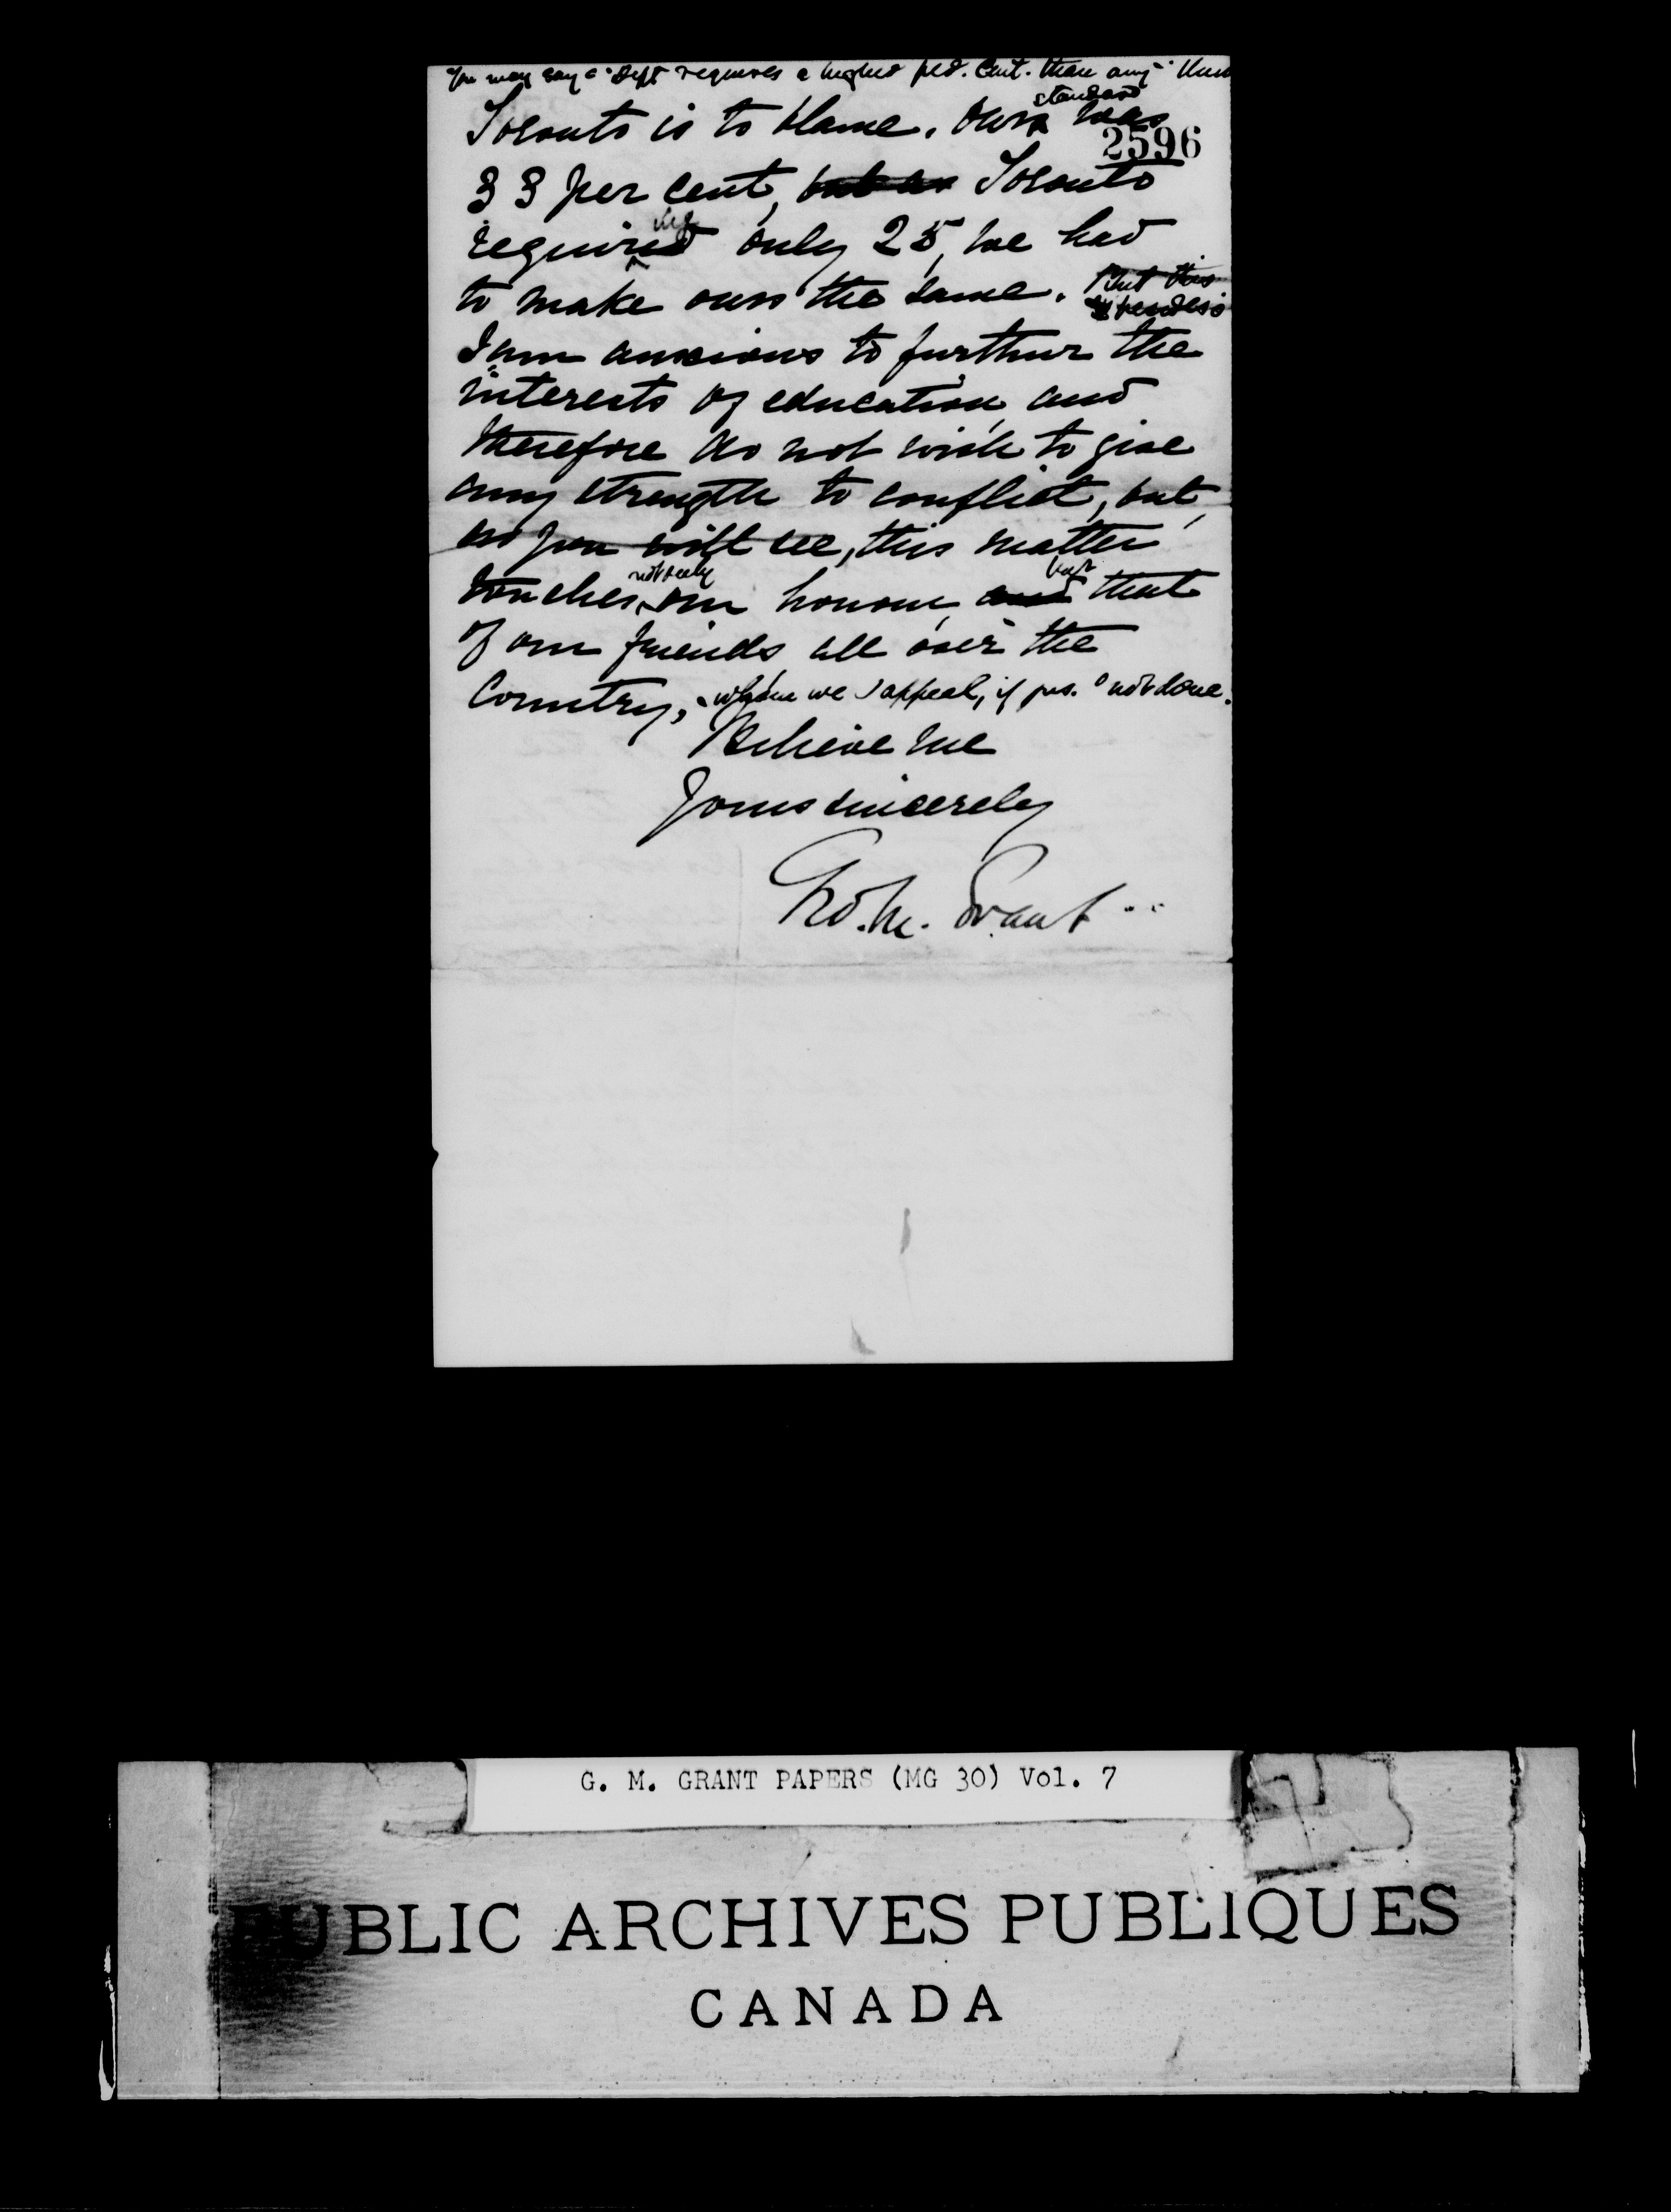 You may say " Dept requires a higher per. cent. than any
standard
Toronto is to blame. Ours was
2596
33 per cent, but as Toronto
ing
required only 25, we had
to make ours the same. But this
I am anxious to further the
interests of education, and
therefore do not wish to give
any strength to conflict, but,
as you will see, this matter
not only but
touches our honour, and that
of our friends all over the
Country, whom we appeal, if jus. not done.
Believe me
Yours sincerely
Geo. M. Grant
G. M. GRANT PAPERS (MG 30) Vol. 7
PUBLIC ARCHIVES PUBLIQUES
CANADA